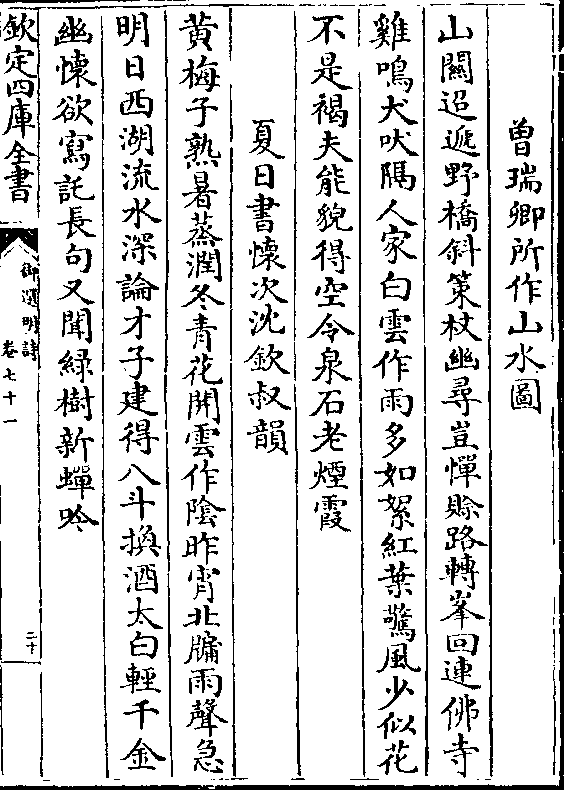 曽瑞卿所作山水圖
山闗迢遞野橋斜策杖幽尋豈憚賖路轉峯回連佛寺
雞鳴犬吠隔人家白雲作雨多如絮紅葉驚風少似花
不是褐夫能貌得空令泉石老煙霞
夏日書懷次沈欽叔韻
黄梅子熟暑蒸潤冬青花開雲作隂昨宵北牖雨聲急
明日西湖流水深論才子建得八斗換酒太白輕千金
幽懷欲寫託長句又聞緑樹新蟬吟
欽定四庫全書
御選明詩
卷七十一
二十